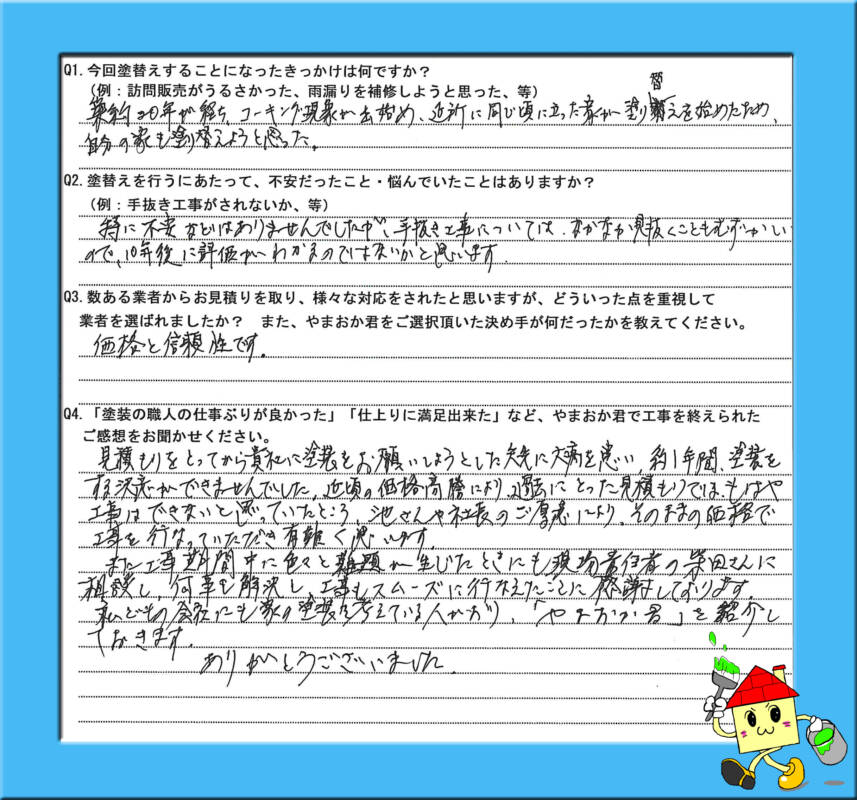 Q1. 今回塗替えすることになったきっかけは何ですか？
（例：訪問販売がうるさかった、雨漏りを補修しようと思った、等）
替
築約20年が経ち、コーキング現象が出始め、近所に同じ頃に立った家が塗り替えを始めたため、
自分の家も塗り替えようと思った。
Q2. 塗替えを行うにあたって、不安だったこと・悩んでいたことはありますか？
（例：手抜き工事がされないか、等）
特に不安などはありませんでしたが、手抜き工事については、なかなか見抜くこともむずかしい
ので、10年後に評価がわかるのではないかと思います。
Q3. 数ある業者からお見積りを取り、様々な対応をされたと思いますが、どういった点を重視して
業者を選ばれましたか？　また、やまおか君をご選択頂いた決め手が何だったかを教えてください。
価格と信頼性です。
Q4. 「塗装の職人の仕事ぶりが良かった」「仕上りに満足出来た」など、やまおか君で工事を終えられた
ご感想をお聞かせください。
見積もりをとってから貴社に塗装をお願いしようとした矢先に大病を患い、約1年間、塗装を
する決断ができませんでした。近頃の価格高騰により、過去にとった見積もりでは、もはや
工事はできないと思っていたところ、池さんや社長のご厚意により、そのままの価格で
工事を行なっていただき有難く思います
また工事期間中に色々と難題が生じたときにも現場責任者の柴田さんに
相談し、何事も解決し、工事もスムーズに行なえたことに感謝しております。
私どもの会社にも家の塗装を考えている人がおり、「やまおか君」を紹介し
ておきます。
ありがとうございました。